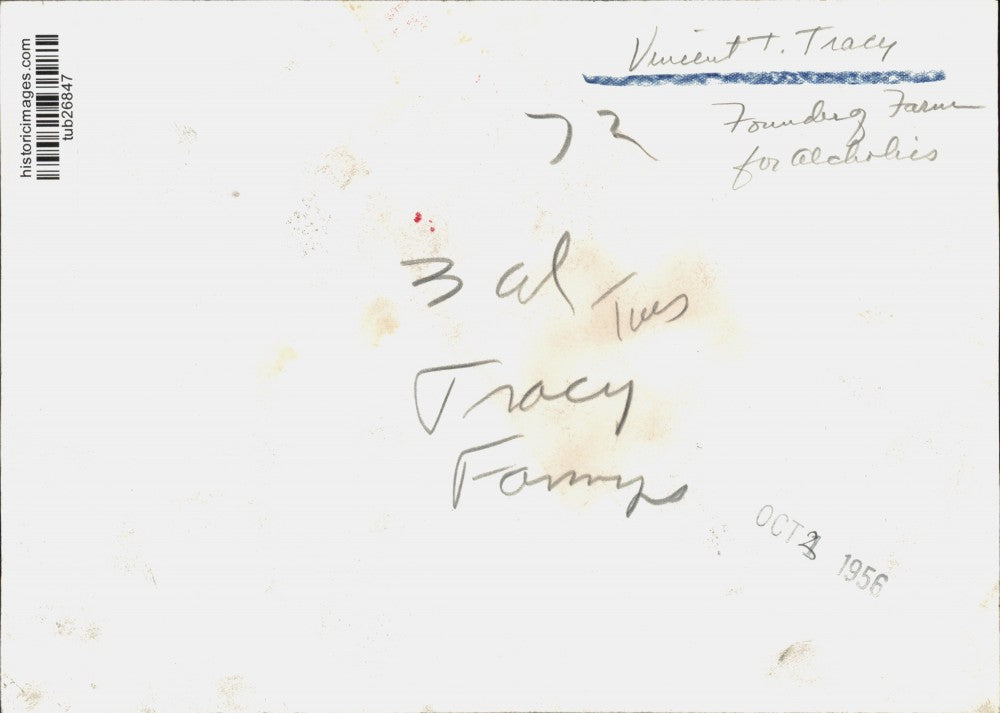 historicimages.com
tub26847
Vincent T. Tracy
Founder of Farm
for Alcoholics
72
3 al
Tues
Tracy
OCT 1956